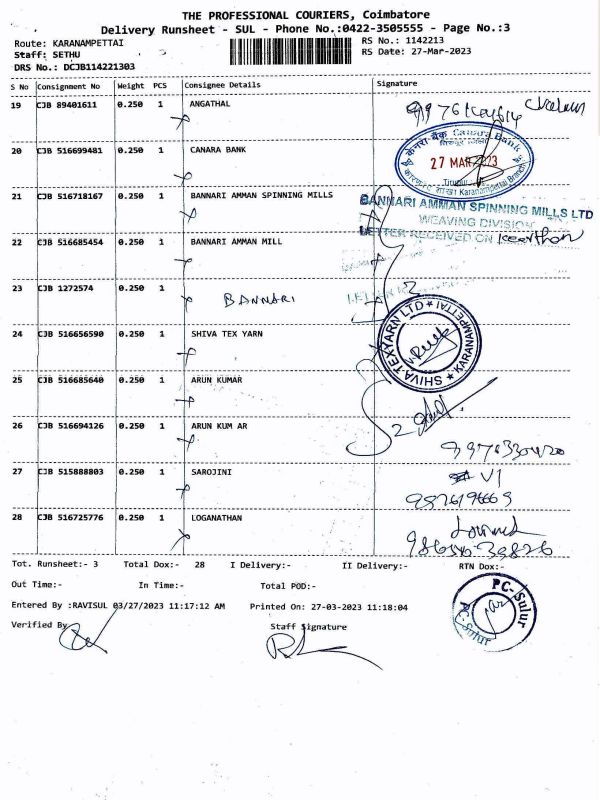 THE PROFESSIONAL COURIERS, Coimbatore
Delivery Runsheet - SUL - Phone No.:0422-3505555 - Page No.:3
Route: KARANAMPETTAI RS No.: 1142213
Staff: SETHU RS Date: 27-Mar-2023
DRS No.: DCJB114221303
S No Consignment No Weight PCS Consignee Details Signature
19 CJB 89401611 0.250 1 ANGATHAL
20 CJB 516699481 0.250 1 CANARA BANK
केनरा बैंक Canara Bank
27 MAR 2023
Karanampettai Branch
21 CJB 516718167 0.250 1 BANNARI AMMAN SPINNING MILLS
BANNARI AMMAN SPINNING MILLS LTD
WEAVING DIVISION
LETTER RECEIVED ON Keerthan
22 CJB 516685454 0.250 1 BANNARI AMMAN MILL
23 CJB 1272574 0.250 1 BANNARI
24 CJB 516656590 0.250 1 SHIVA TEX YARN
SHIVA TEXYARN LTD ★ KARANAMPETTAI ★
25 CJB 516685640 0.250 1 ARUN KUMAR
26 CJB 516694126 0.250 1 ARUN KUM AR
27 CJB 515888803 0.250 1 SAROJINI
28 CJB 516725776 0.250 1 LOGANATHAN
Tot. Runsheet:- 3 Total Dox:- 28 I Delivery:- II Delivery:- RTN Dox:-
Out Time:- In Time:- Total POD:-
Entered By :RAVISUL 03/27/2023 11:17:12 AM Printed On: 27-03-2023 11:18:04
Verified By Staff Signature
PC-Sulur
PC-Sulur